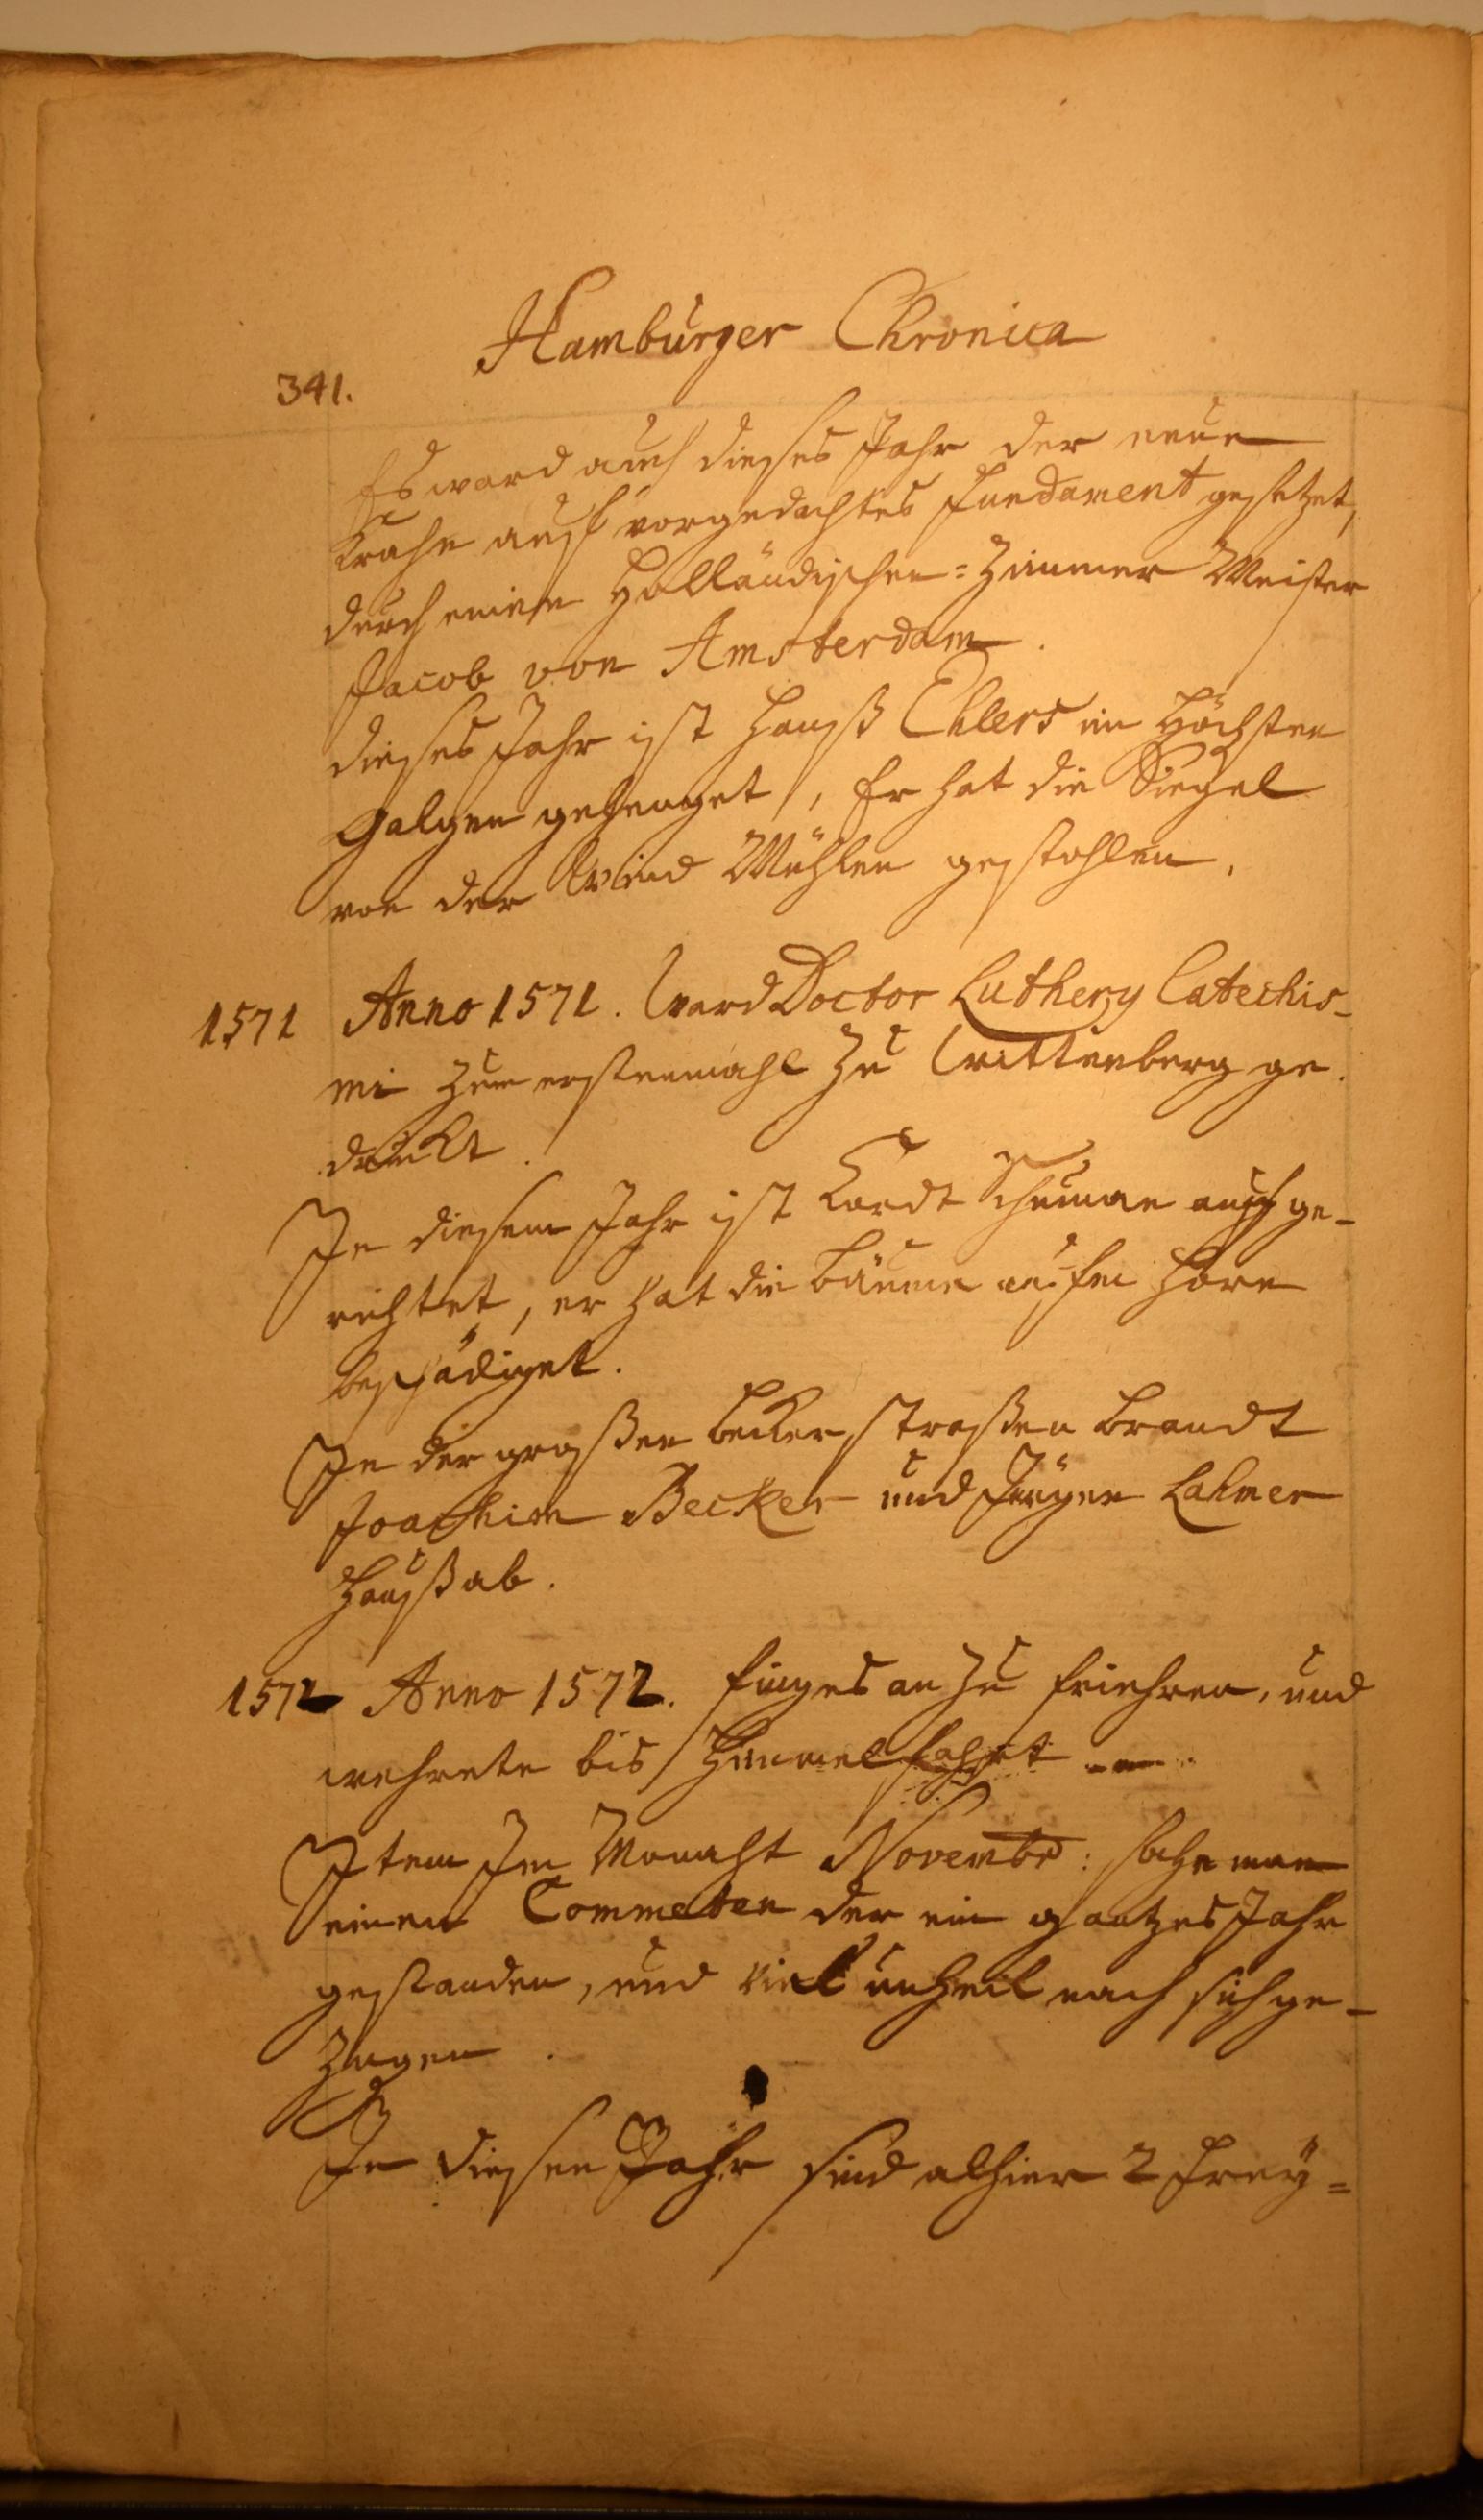 Hamburger Chronica
341.
Es ward auch dieses Jahr der neue
Krahn auf vorgedachtes Fundament gesetzet,
durch einen Holländischen=Zimmer Meister
Jacob von Amsterdam.
dieses Jahr ist Hanß Ehlers im Höchsten
Galgen gehenget, Er hat die Siegel
von der Wind Mühlen gestohlen.
1571 Anno 1571. Ward Doctor Luthery Catechis-
mi zum erstenmahl zu Wittenberg ge
druckt.
In diesem Jahr ist Cordt Schuman auß ge-
richtet, er hat die Bäume aufm Horn
beschädiget.
In der großen Becker straßen brandt
Joachim Becker und Jürgen Lahmer
Hauß ab.
1572 Anno 1572. fing es an zu friehren, und
wehrete bis Himmelfahrt
Item Im Monaht Novembr: sahe man
einen Commeten der ein gantzes Jahr
gestanden, und viel unheil nach sich ge-
zogen.
In diesen Jahr sind alhier 2 Frey=